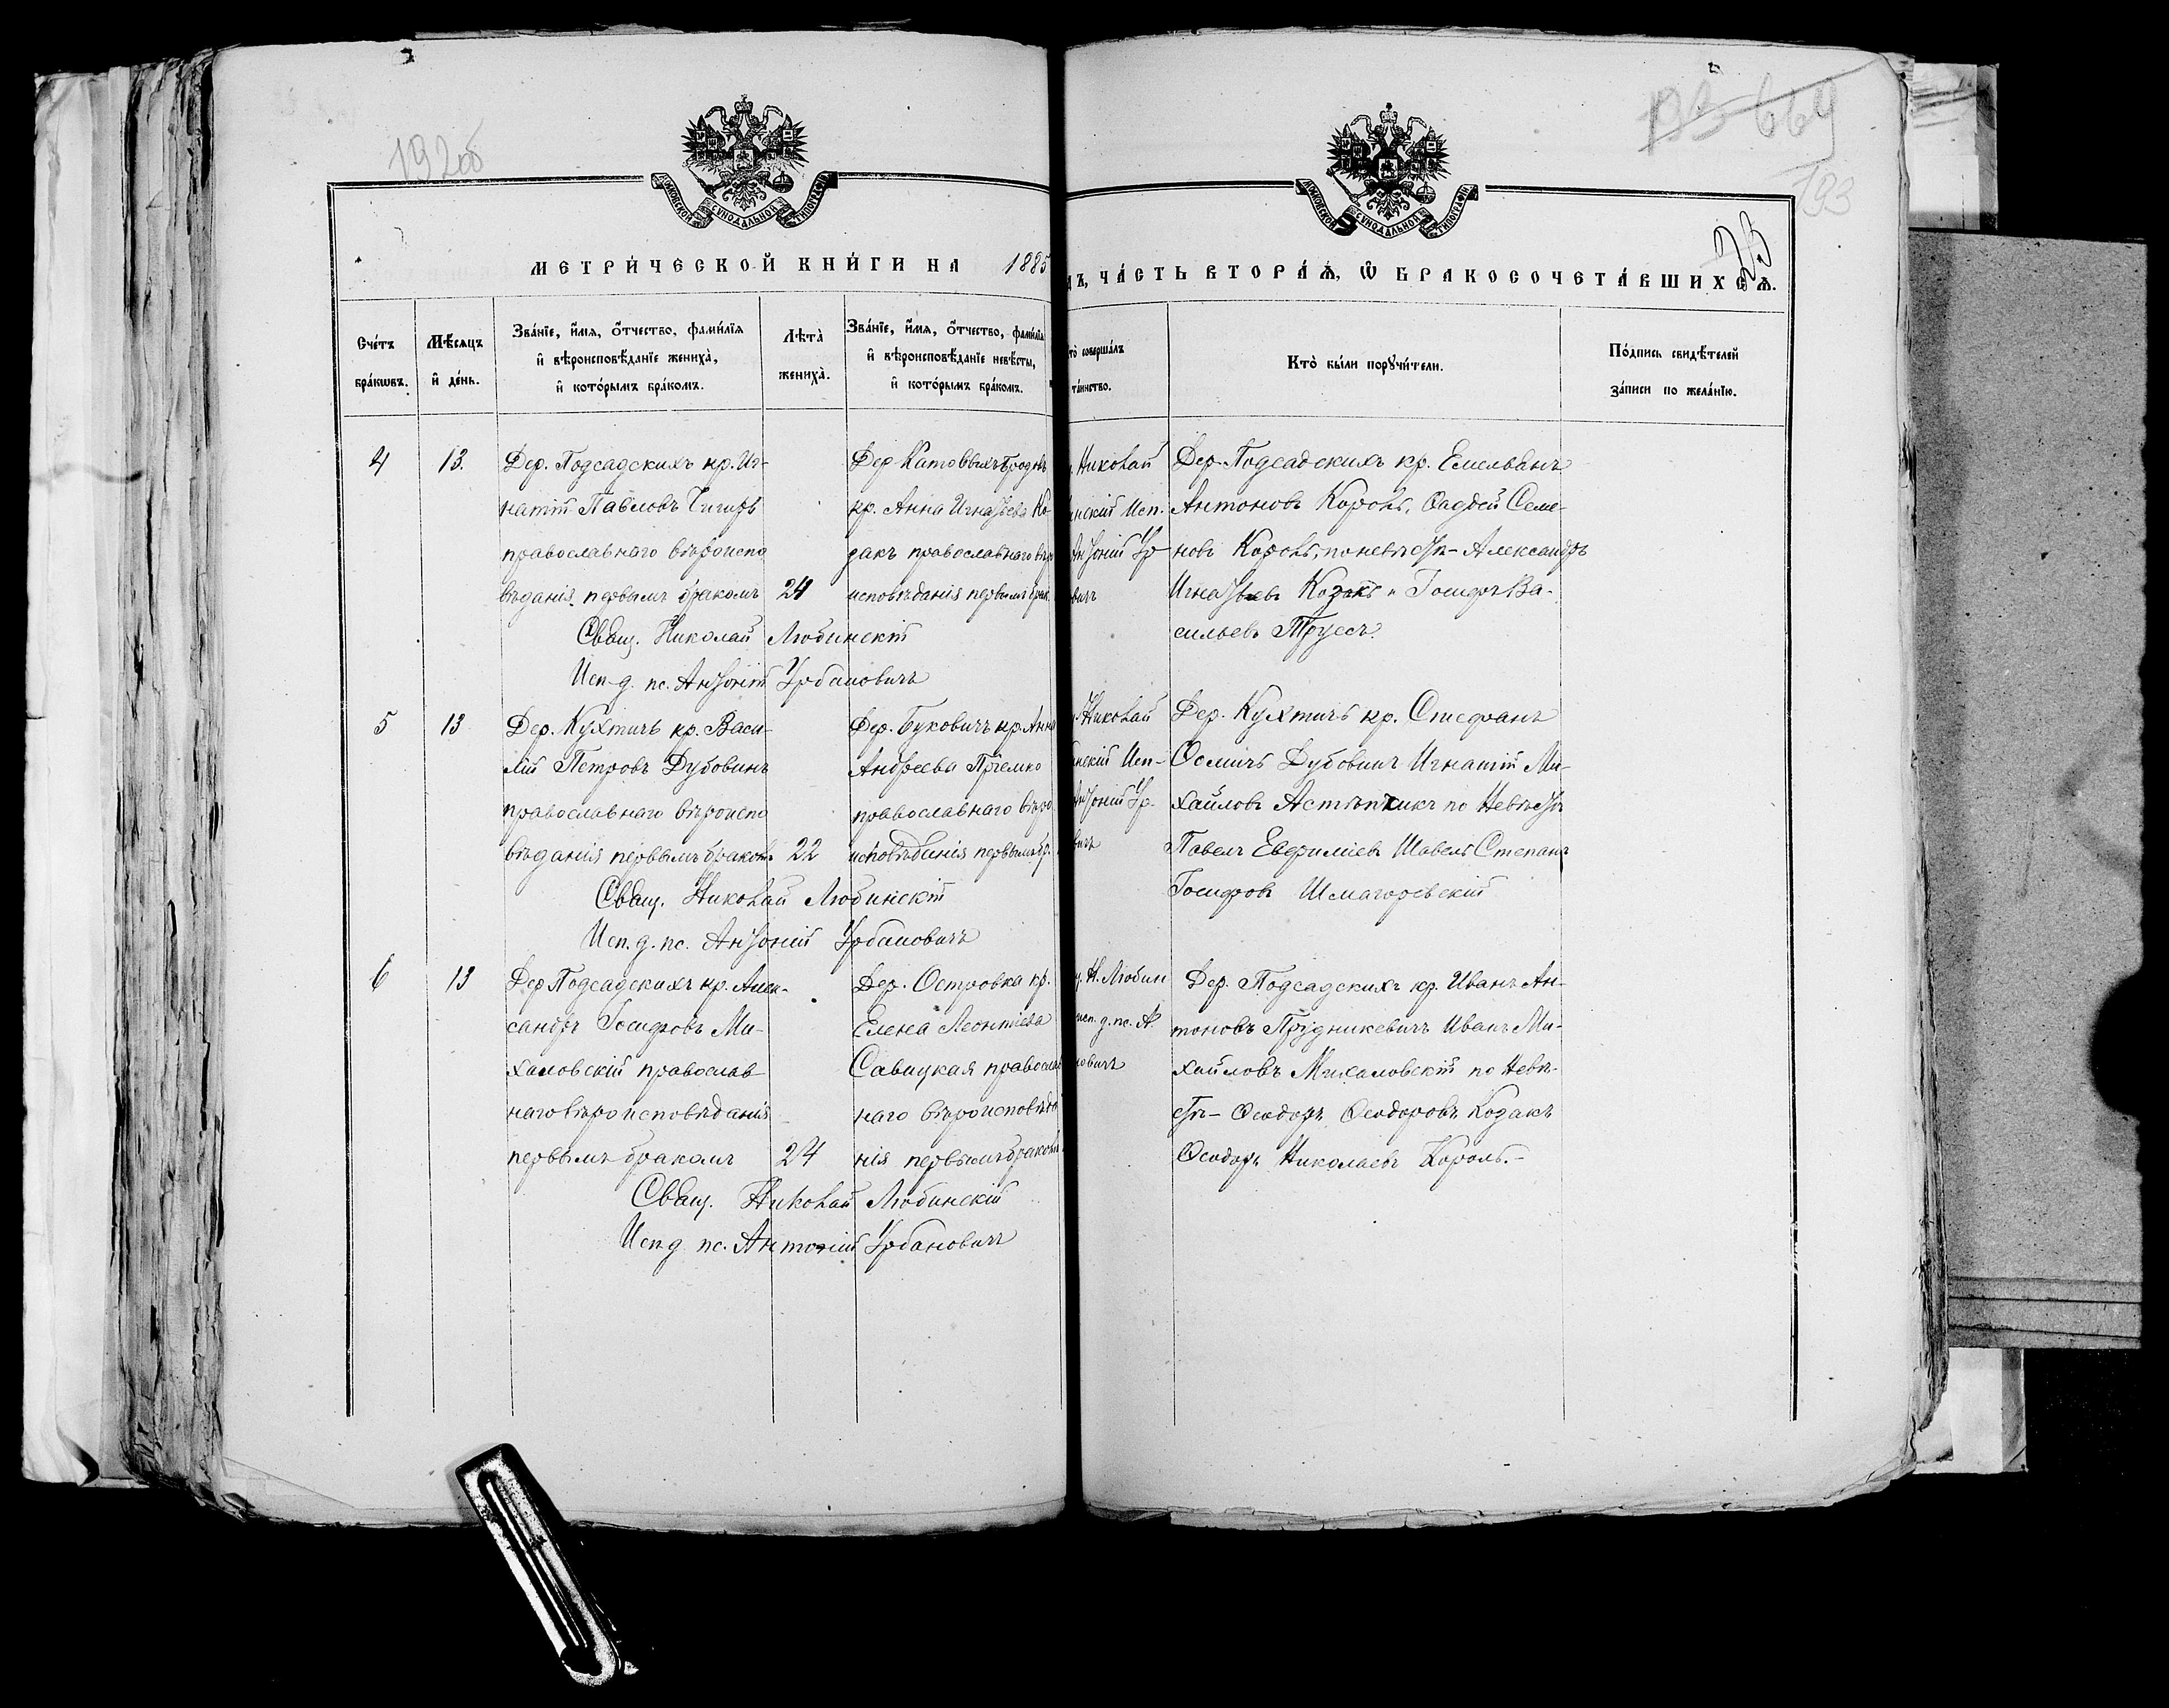 192об
669
193
МОСКОВСКОЙ СѴНОДАЛЬНОЙ ТИПОГРАФІИ
МОСКОВСКОЙ СѴНОДАЛЬНОЙ ТИПОГРАФІИ
МЕТРИ́ЧЕСКОЙ КНИ́ГИ НА 1885
Ъ, ЧА́СТЬ ВТОРА́Ѧ, Ѽ БРАКОСОЧЕТА́ВШИХСѦ.
Сче́тъ бра́кѡвъ.
Мѣ́сѧцъ и҆ де́нь.
Зва́нїе, и҆́мѧ, ѻ҆́тчество, фами́лїѧ
и҆ вѣроисповѣ́данїе жениха̀,
и҆ кото́рымъ бра́комъ.
Лѣта̀ жениха̀.
Зва́нїе, и҆́мѧ, ѻ҆́тчество, фами́лїѧ
и҆ вѣроисповѣ́данїе невѣ́сты,
и҆ кото́рымъ бра́комъ.
то̀ соверша́лъ
та́инство.
Кто̀ бы́ли порꙋчи́тели.
По́дпись свидѣ́телей
за́писи по жела́нїю.
4
13.
Дер. Подсадскихъ кр. Иг-
натій Павловъ Чигирь
православнаго вѣроиспо
вѣданія первымъ бракомъ
24
Дер
кр. Анна Игнатьева Ко-
закъ православнаго вѣро
исповѣданія первымъ брак.
Николай
инскій Исп.
Антоній Ур
овичъ
Дер. Подсадскихъ кр. Емельянъ
Антоновъ Король, Фадей Семе-
новъ Король, по невѣстѣ - Александръ
Игнатьевъ Козакъ и Іосифъ Ва-
сильевъ Трусъ.
Свящ. Николай Любинскій
Исп. д. пс. Антоній Урбановичъ
5
13
Дер. Кухтичъ кр. Васи-
лій Петровъ Дубовикъ
православнаго вѣроиспо
вѣданія первымъ бракомъ
22
Дер. Буковичъ кр. Анна
Андреева
православнаго вѣро
исповѣданія первымъ бр.
Николай
инскій Исп-
Антоній Ур-
вичъ
Дер. Кухтичъ кр. Стефанъ
Дубовикъ Игнатій Ми-
хайловъ по Невѣстѣ
Павелъ Евфиміевъ Шавель Степанъ
Іосифовъ
Свящ. Николай Любинскій
Исп. д. пс. Антоній Урбановичъ
6
13
Дер Подсадскихъ кр. Алек-
сандръ Іосифовъ Ми-
халовскій православ-
наго вѣроисповѣданія
первымъ бракомъ
24
Дер. Островка кр.
Елена Леонтіева
Савицкая православ
наго вѣроисповѣда
нія первымъ бракомъ
щ. Н. Любин
исп. д. пс. А.
новичъ
Дер. Подсадскихъ кр. Иванъ Ан-
тоновъ Прудникевичъ Иванъ Ми-
хайловъ Михаловскій по Невѣ-
стѣ - Ѳеодоръ Ѳеодоровъ Козакъ
Ѳеодоръ Николаевъ Король. -
Свящ. Николай Любинскій
Исп д пс. Антоній Урбановичъ